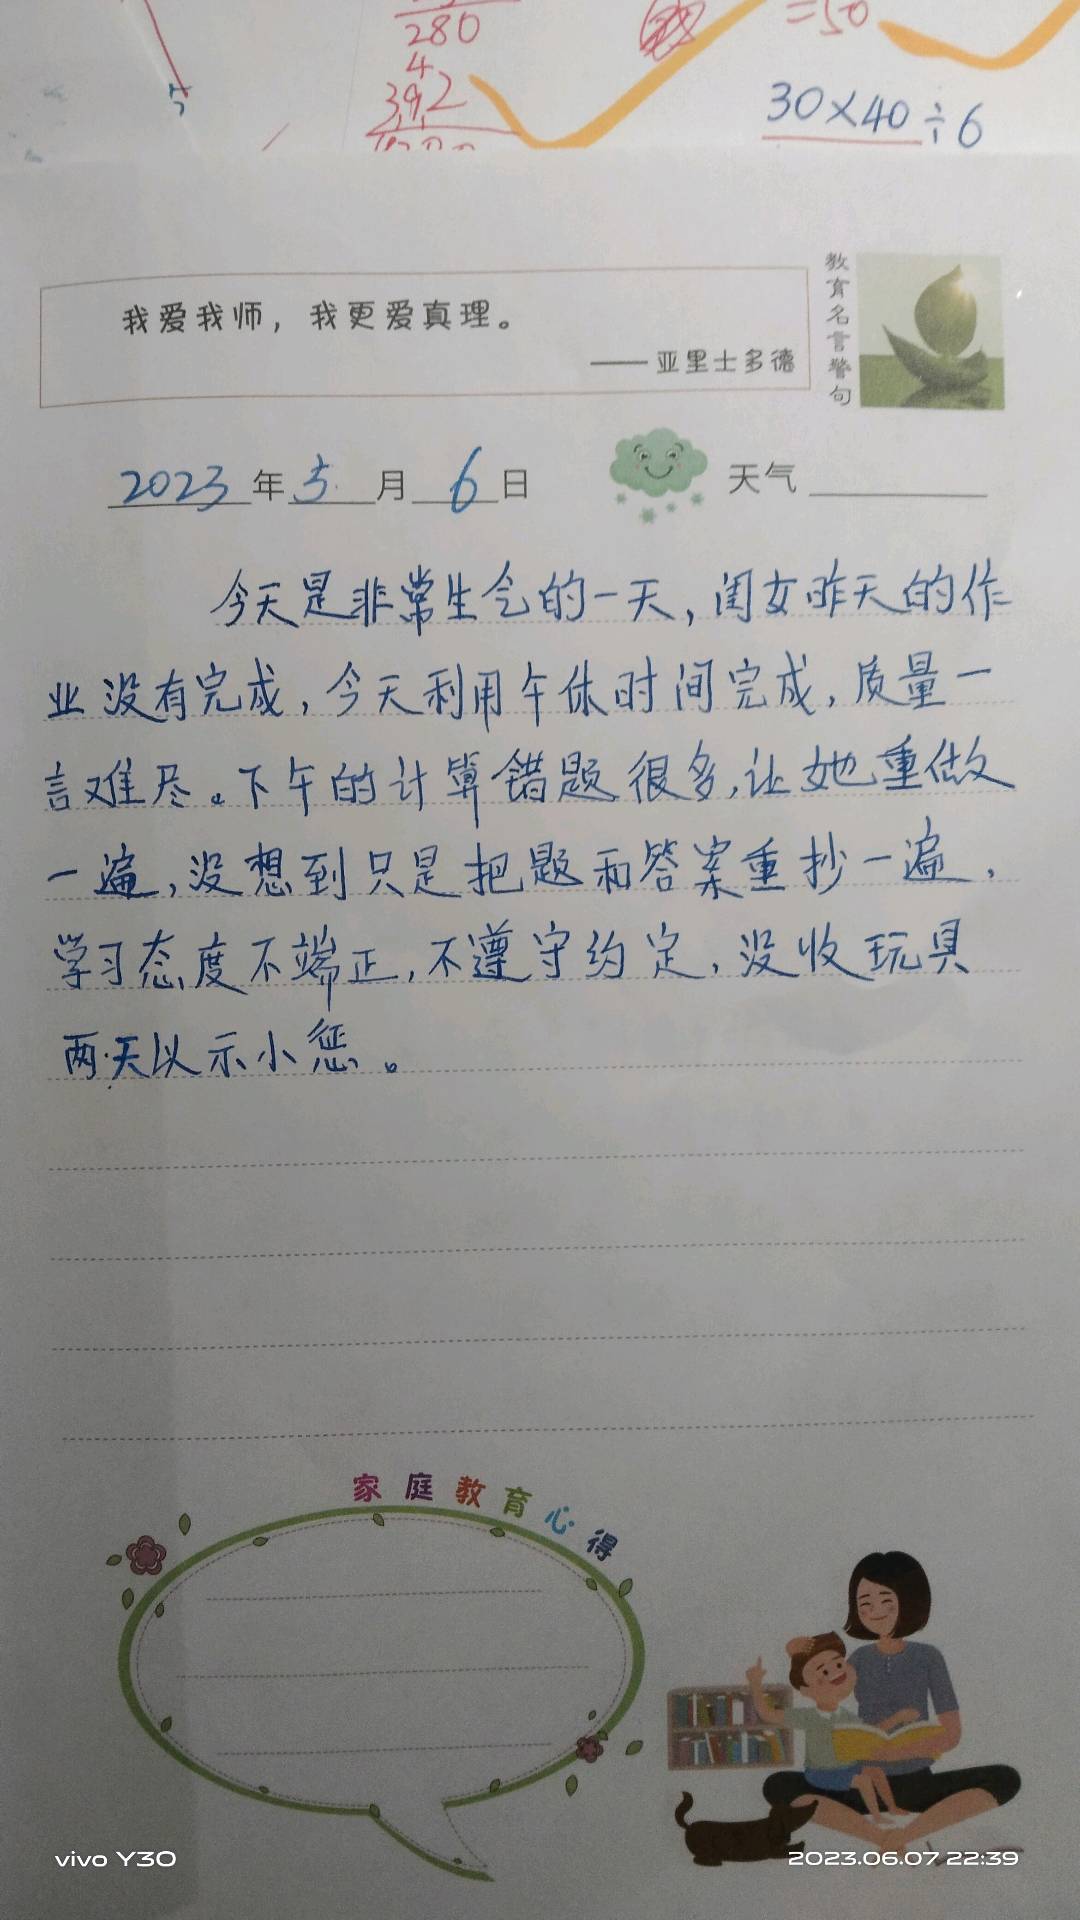 280
4
392
=50
30×40÷6
我爱我师，我更爱真理。
——亚里士多德
教育名言警句
2023年5月6日 天气
今天是非常生气的一天，闺女昨天的作
业没有完成，今天利用午休时间完成，质量一
言难尽。下午的计算错题很多，让她重做
一遍，没想到只是把题和答案重抄一遍，
学习态度不端正，不遵守约定，没收玩具
两天以示小惩。
家庭教育心得
vivo Y30
2023.06.07 22:39